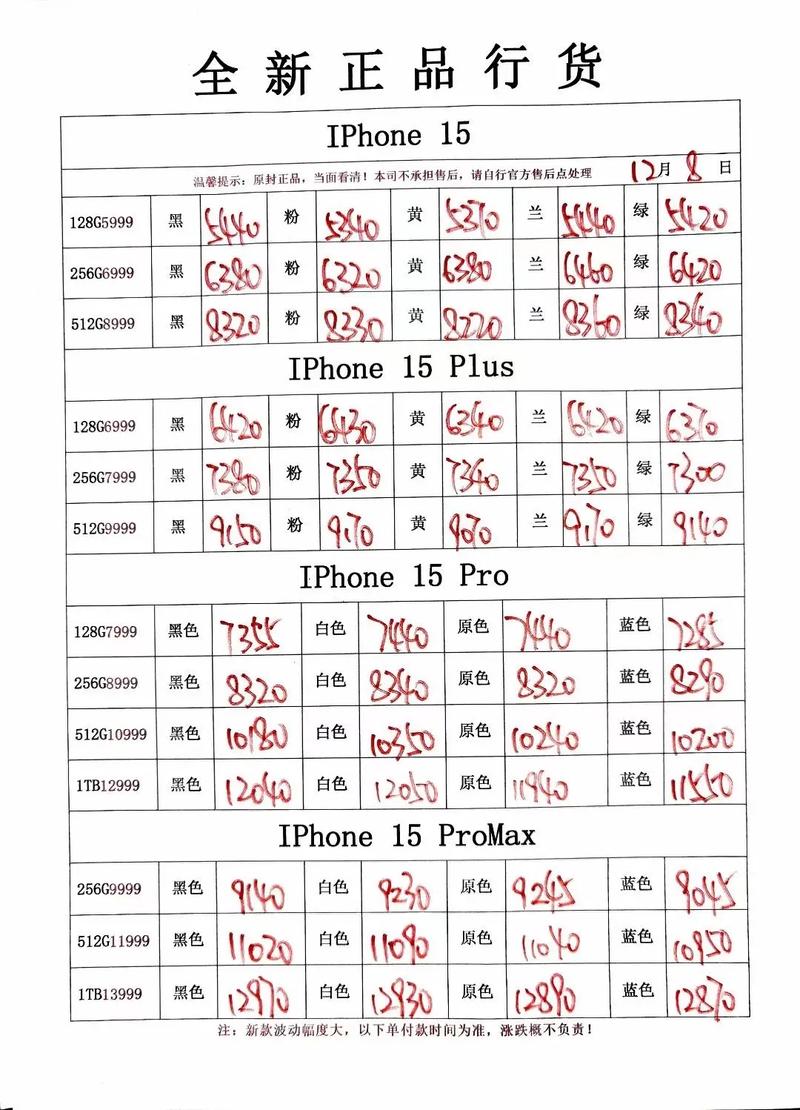 全新正品行货
IPhone 15
温馨提示：原封正品，当面看清！本司不承担售后，请自行官方售后点处理 12月8日
128G5999 黑 5440 粉 5340 黄 5370 兰 5440 绿 5420
256G6999 黑 6380 粉 6320 黄 6380 兰 6460 绿 6420
512G8999 黑 8320 粉 8330 黄 8220 兰 8360 绿 8340
IPhone 15 Plus
128G6999 黑 6420 粉 6430 黄 6340 兰 6420 绿 6370
256G7999 黑 7380 粉 7350 黄 7340 兰 7350 绿 7300
512G9999 黑 9150 粉 9170 黄 9070 兰 9170 绿 9140
IPhone 15 Pro
128G7999 黑色 7355 白色 7440 原色 7440 蓝色 7285
256G8999 黑色 8320 白色 8340 原色 8320 蓝色 8290
512G10999 黑色 10180 白色 10350 原色 10240 蓝色 10200
1TB12999 黑色 12040 白色 12050 原色 11940 蓝色 11550
IPhone 15 ProMax
256G9999 黑色 9140 白色 9230 原色 9245 蓝色 9045
512G11999 黑色 11020 白色 11090 原色 11040 蓝色 10950
1TB13999 黑色 12970 白色 12930 原色 12890 蓝色 12870
注：新款波动幅度大，以下单付款时间为准，涨跌概不负责！